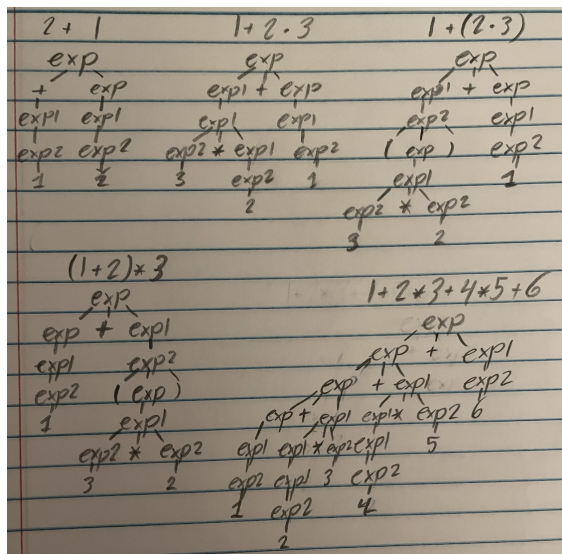 2 + 1
exp
+ exp
exp1 exp1
exp2 exp2
1 2
1 + 2 · 3
exp
exp1 + exp
exp1 exp1
exp2 * exp1 exp2
3 exp2 1
2
1 + (2 · 3)
exp
exp1 + exp
exp2 exp1
( exp ) exp2
exp1 1
exp2 * exp2
3 2
(1+2)*3
exp
exp + exp1
exp1 exp2
exp2 (exp)
1 exp1
exp2 * exp2
3 2
1+2*3+4*5+6
exp
exp + exp1
exp + exp1 exp2
exp + exp1 exp1 * exp2 6
exp1 exp1 * exp2 exp1 5
exp2 exp1 3 exp2
1 exp2 4
2